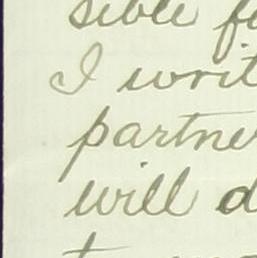 sible
I writ
partne
will d